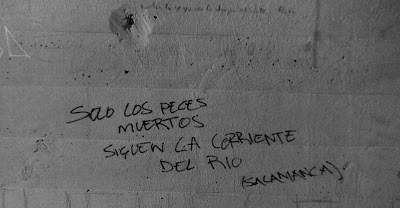 SOLO LOS PECES
MUERTOS
SIGUEN LA CORRIENTE
DEL RIO
(SALAMANCA)